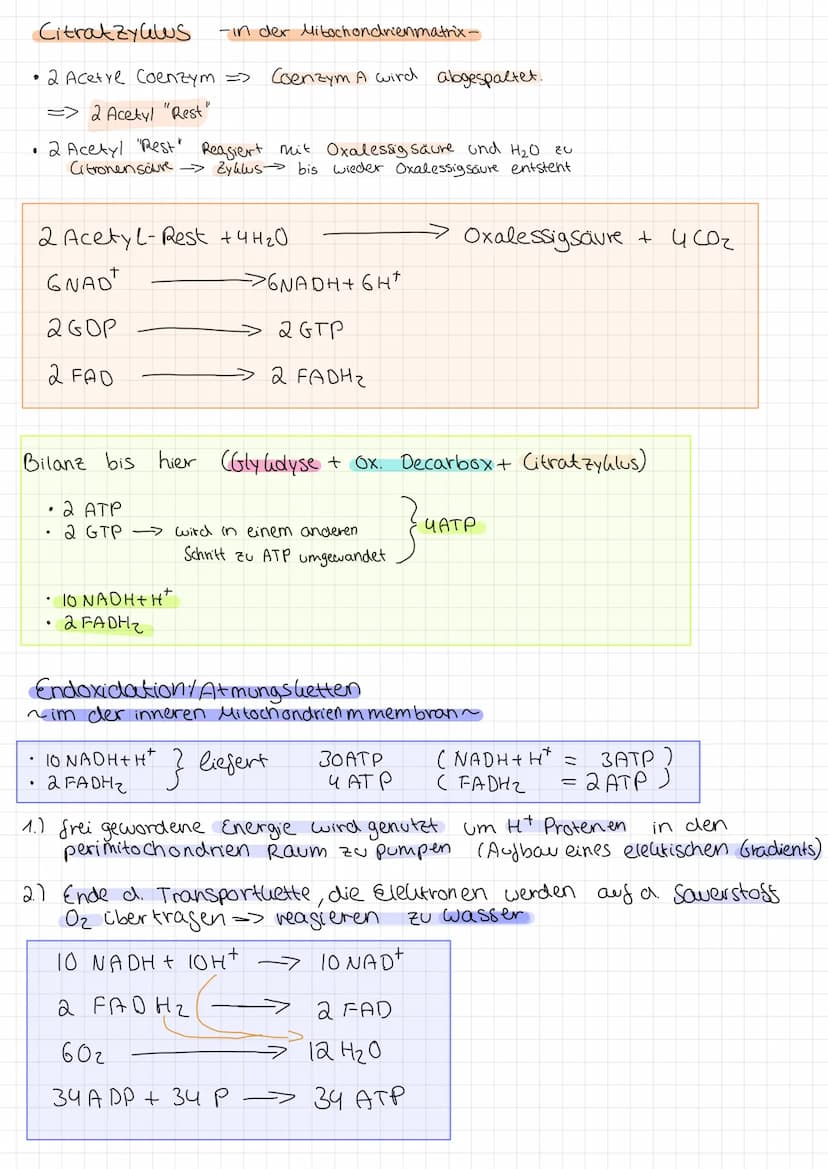 Citratzyklus -in der Mitochondrienmatrix-
• 2 Acetyl Coenzym => Coenzym A wird abgespaltet.
=> 2 Acetyl "Rest"
• 2 Acetyl "Rest" Reagiert mit Oxalessigsäure und H₂O zu
Citronensäure -> Zyklus -> bis wieder Oxalessigsäure entsteht
2 Acetyl-Rest + 4H₂O → Oxalessigsäure + 4CO₂
6NAD⁺ → 6NADH + 6H⁺
2GDP → 2GTP
2 FAD → 2 FADH₂
Bilanz bis hier (Glykolyse + Ox. Decarbox + Citratzyklus)
• 2 ATP
• 2 GTP → wird in einem anderen } 4ATP
Schritt zu ATP umgewandet
• 10 NADH+H⁺
• 2 FADH₂
Endoxidation/Atmungsketten
~im der inneren Mitochondrienmmembran~
• 10 NADH+H⁺ } liefert 30ATP (NADH+H⁺ = 3ATP)
• 2FADH₂ 4ATP (FADH₂ = 2ATP)
1.) frei gewordene Energie wird genutzt um H⁺ Protenen in den
perimitochondrien Raum zu pumpen (Aufbau eines elektischen Gradients)
2.) Ende d. Transportkette, die Elektronen werden auf d. Sauerstoff
O₂ übertragen => reagieren zu Wasser
10 NADH + 10H⁺ → 10NAD⁺
2 FADH₂ → 2 FAD
6O₂ → 12 H₂O
34ADP + 34 P → 34 ATP